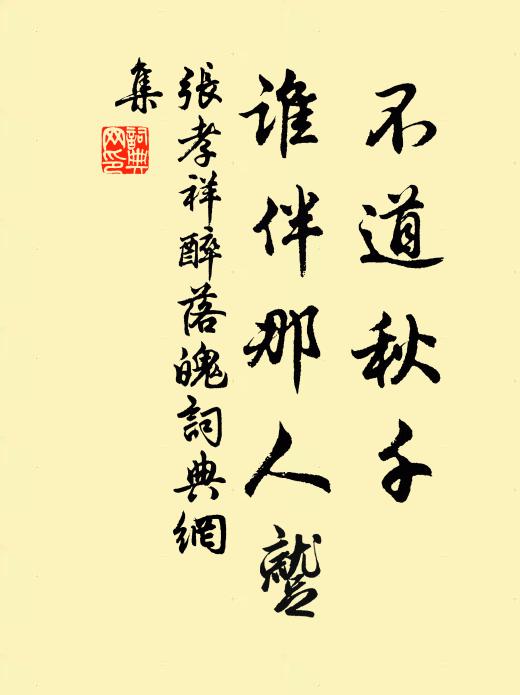 不道秋千
誰伴那人蹵
張孝祥醉落魄詞典網
集
詞典
网印